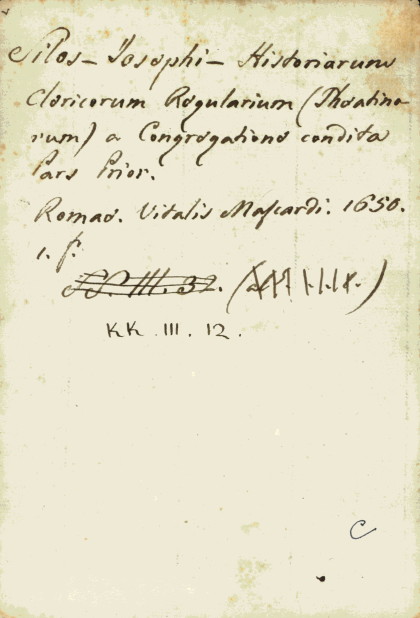 Silos - Josephi - Historiarum
Clericorum Regularium (Theatino-
rum) a Congregatione condita
Pars Prior.
Romae. Vitalis Mascardi. 1650.
1. f.
SS. III. 32.
KK. III. 12.
C